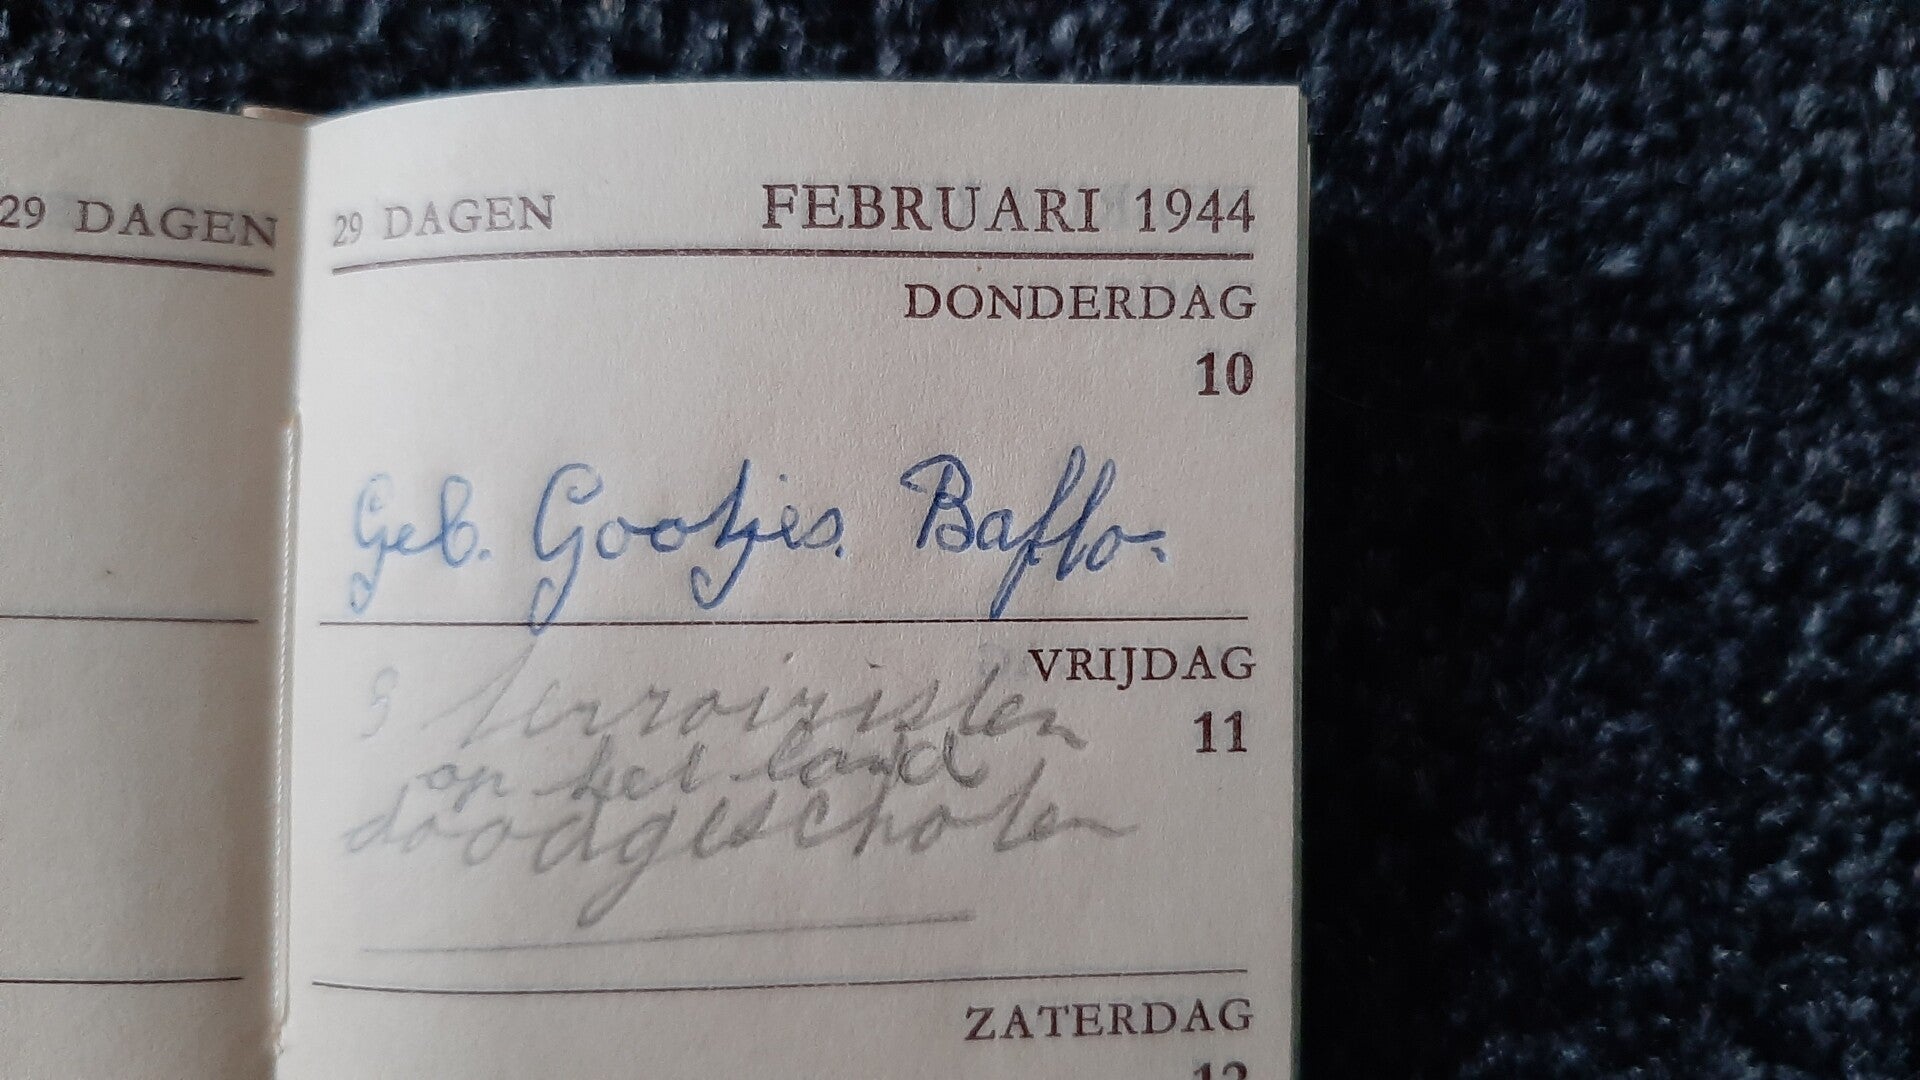 29 DAGEN
29 DAGEN FEBRUARI 1944
DONDERDAG
10
Geb. Gootjes. Baflo.
VRIJDAG
11
terroiristen
op het land
doodgeschoten
ZATERDAG
12